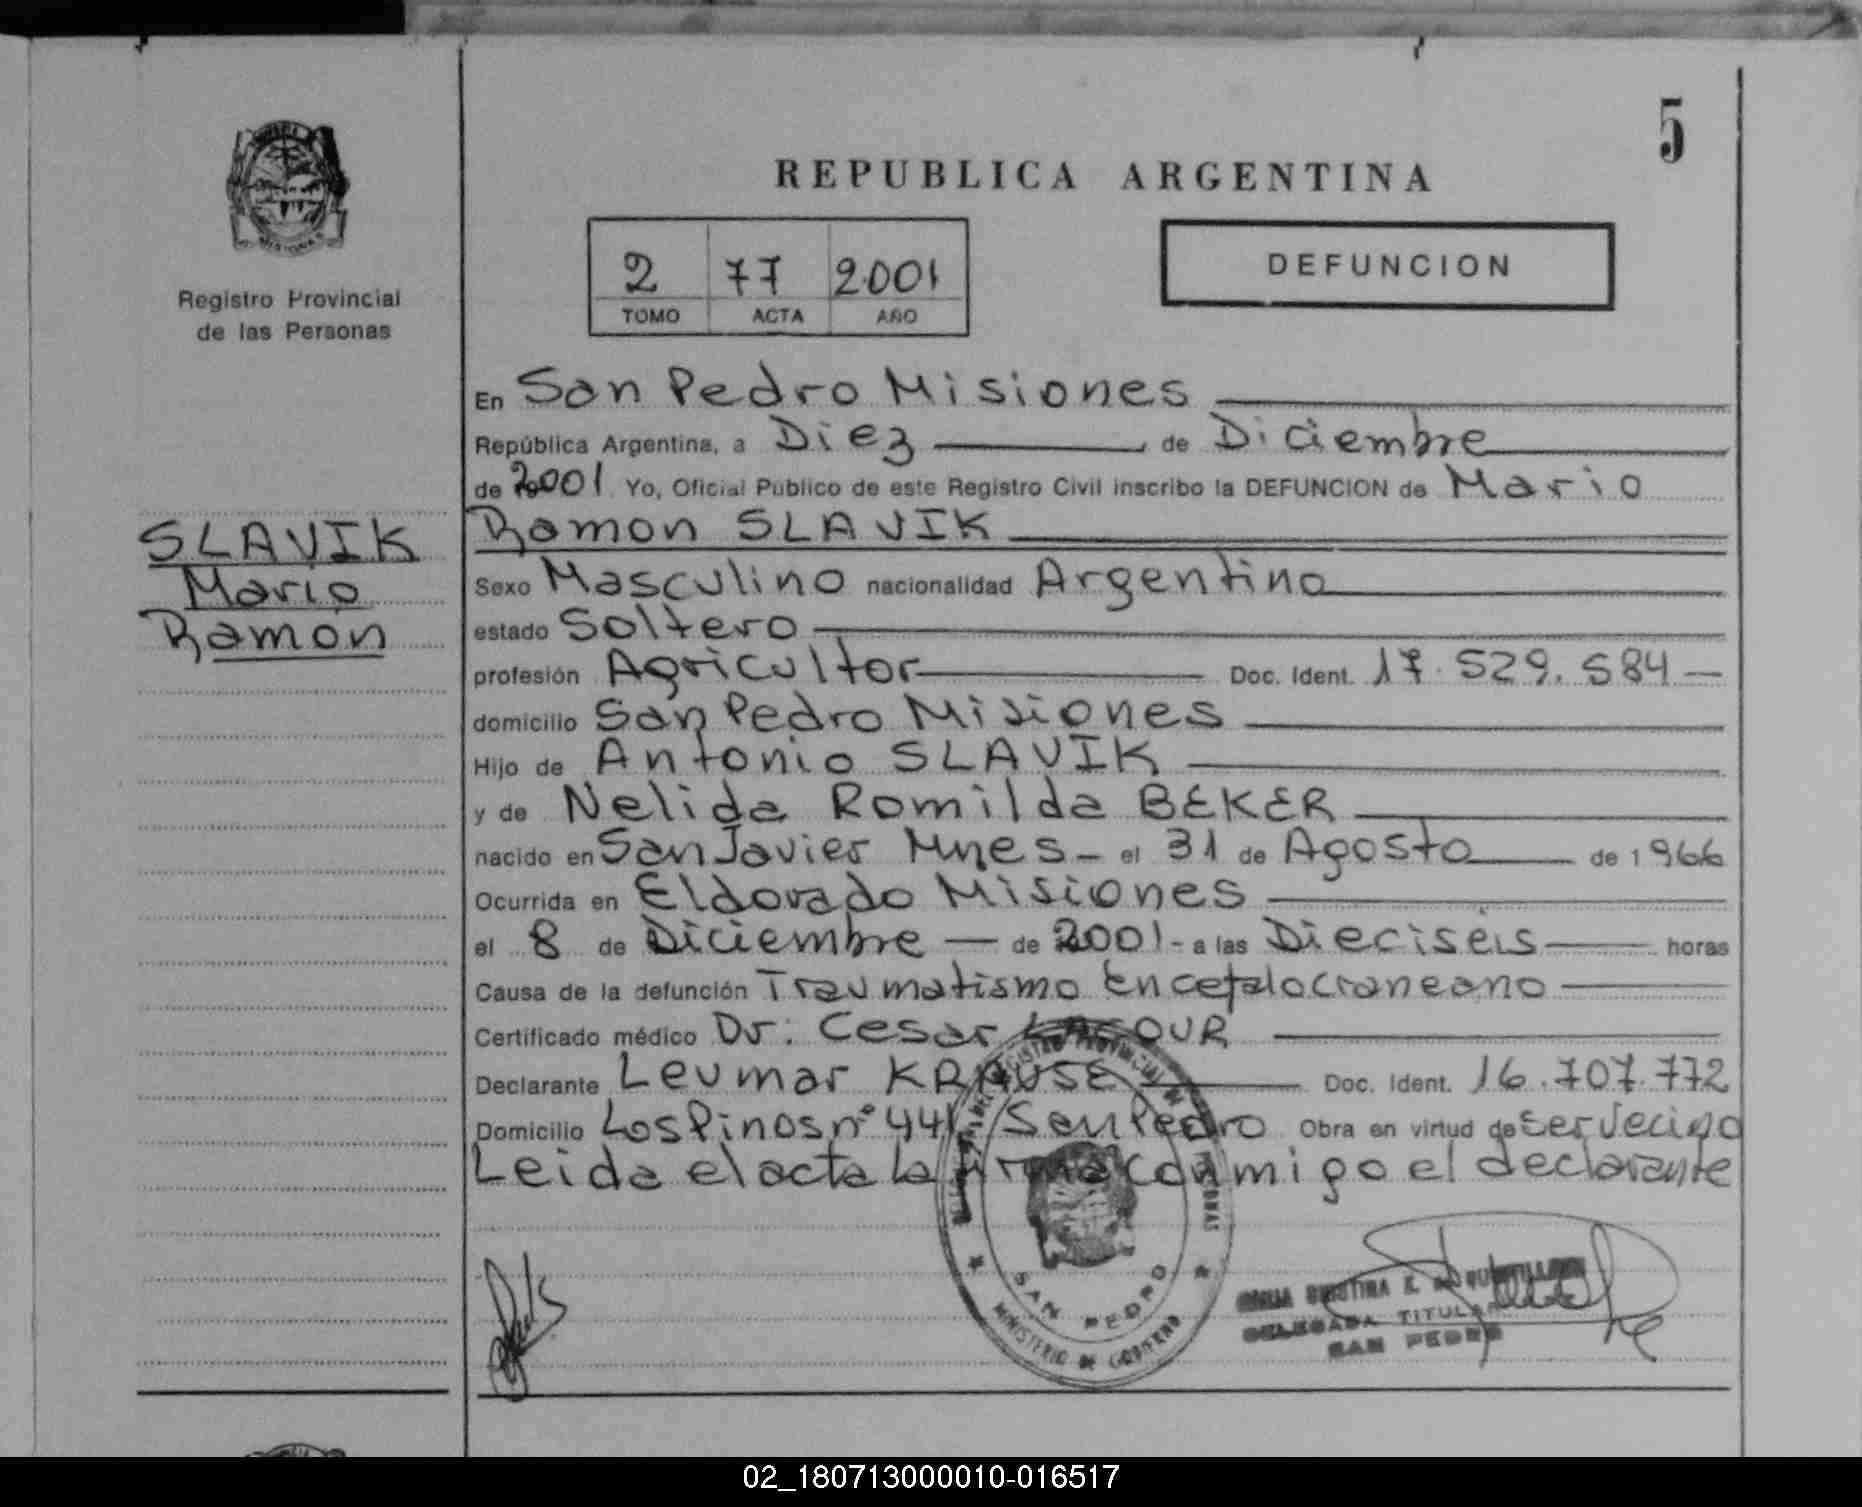 5
REPUBLICA ARGENTINA
2 77 2001
TOMO ACTA AÑO
DEFUNCION
MISIONES
Registro Provincial
de las Personas
SLAVIK
Mario
Ramón
En San Pedro Misiones
República Argentina, a Diez de Diciembre
de 2001 Yo, Oficial Publico de este Registro Civil inscribo la DEFUNCION de Mario
Ramon SLAVIK
Sexo Masculino nacionalidad Argentino
estado Soltero
profesión Agricultor Doc. Ident. 17.529.584
domicilio San Pedro Misiones
Hijo de Antonio SLAVIK
y de Nelida Romilda BEKER
nacido en San Javier Mnes - el 31 de Agosto de 1966
Ocurrida en Eldorado Misiones
el 8 de Diciembre de 2001 - a las Dieciseis horas
Causa de la defunción Traumatismo Encefalocraneano
Certificado médico Dr: Cesar
Declarante Leumar KRAUSE Doc. Ident. 16.707.772
Domicilio Los Pinos nº 441 San Pedro Obra en virtud de ser vecino
Leida el acta la firma conmigo el declarante
REGISTRO PROVINCIAL DE LAS PERSONAS
SAN PEDRO
MINISTERIO DE GOBIERNO
CRISTINA
DELEGADA TITULAR
SAN PEDRO
02_180713000010-016517